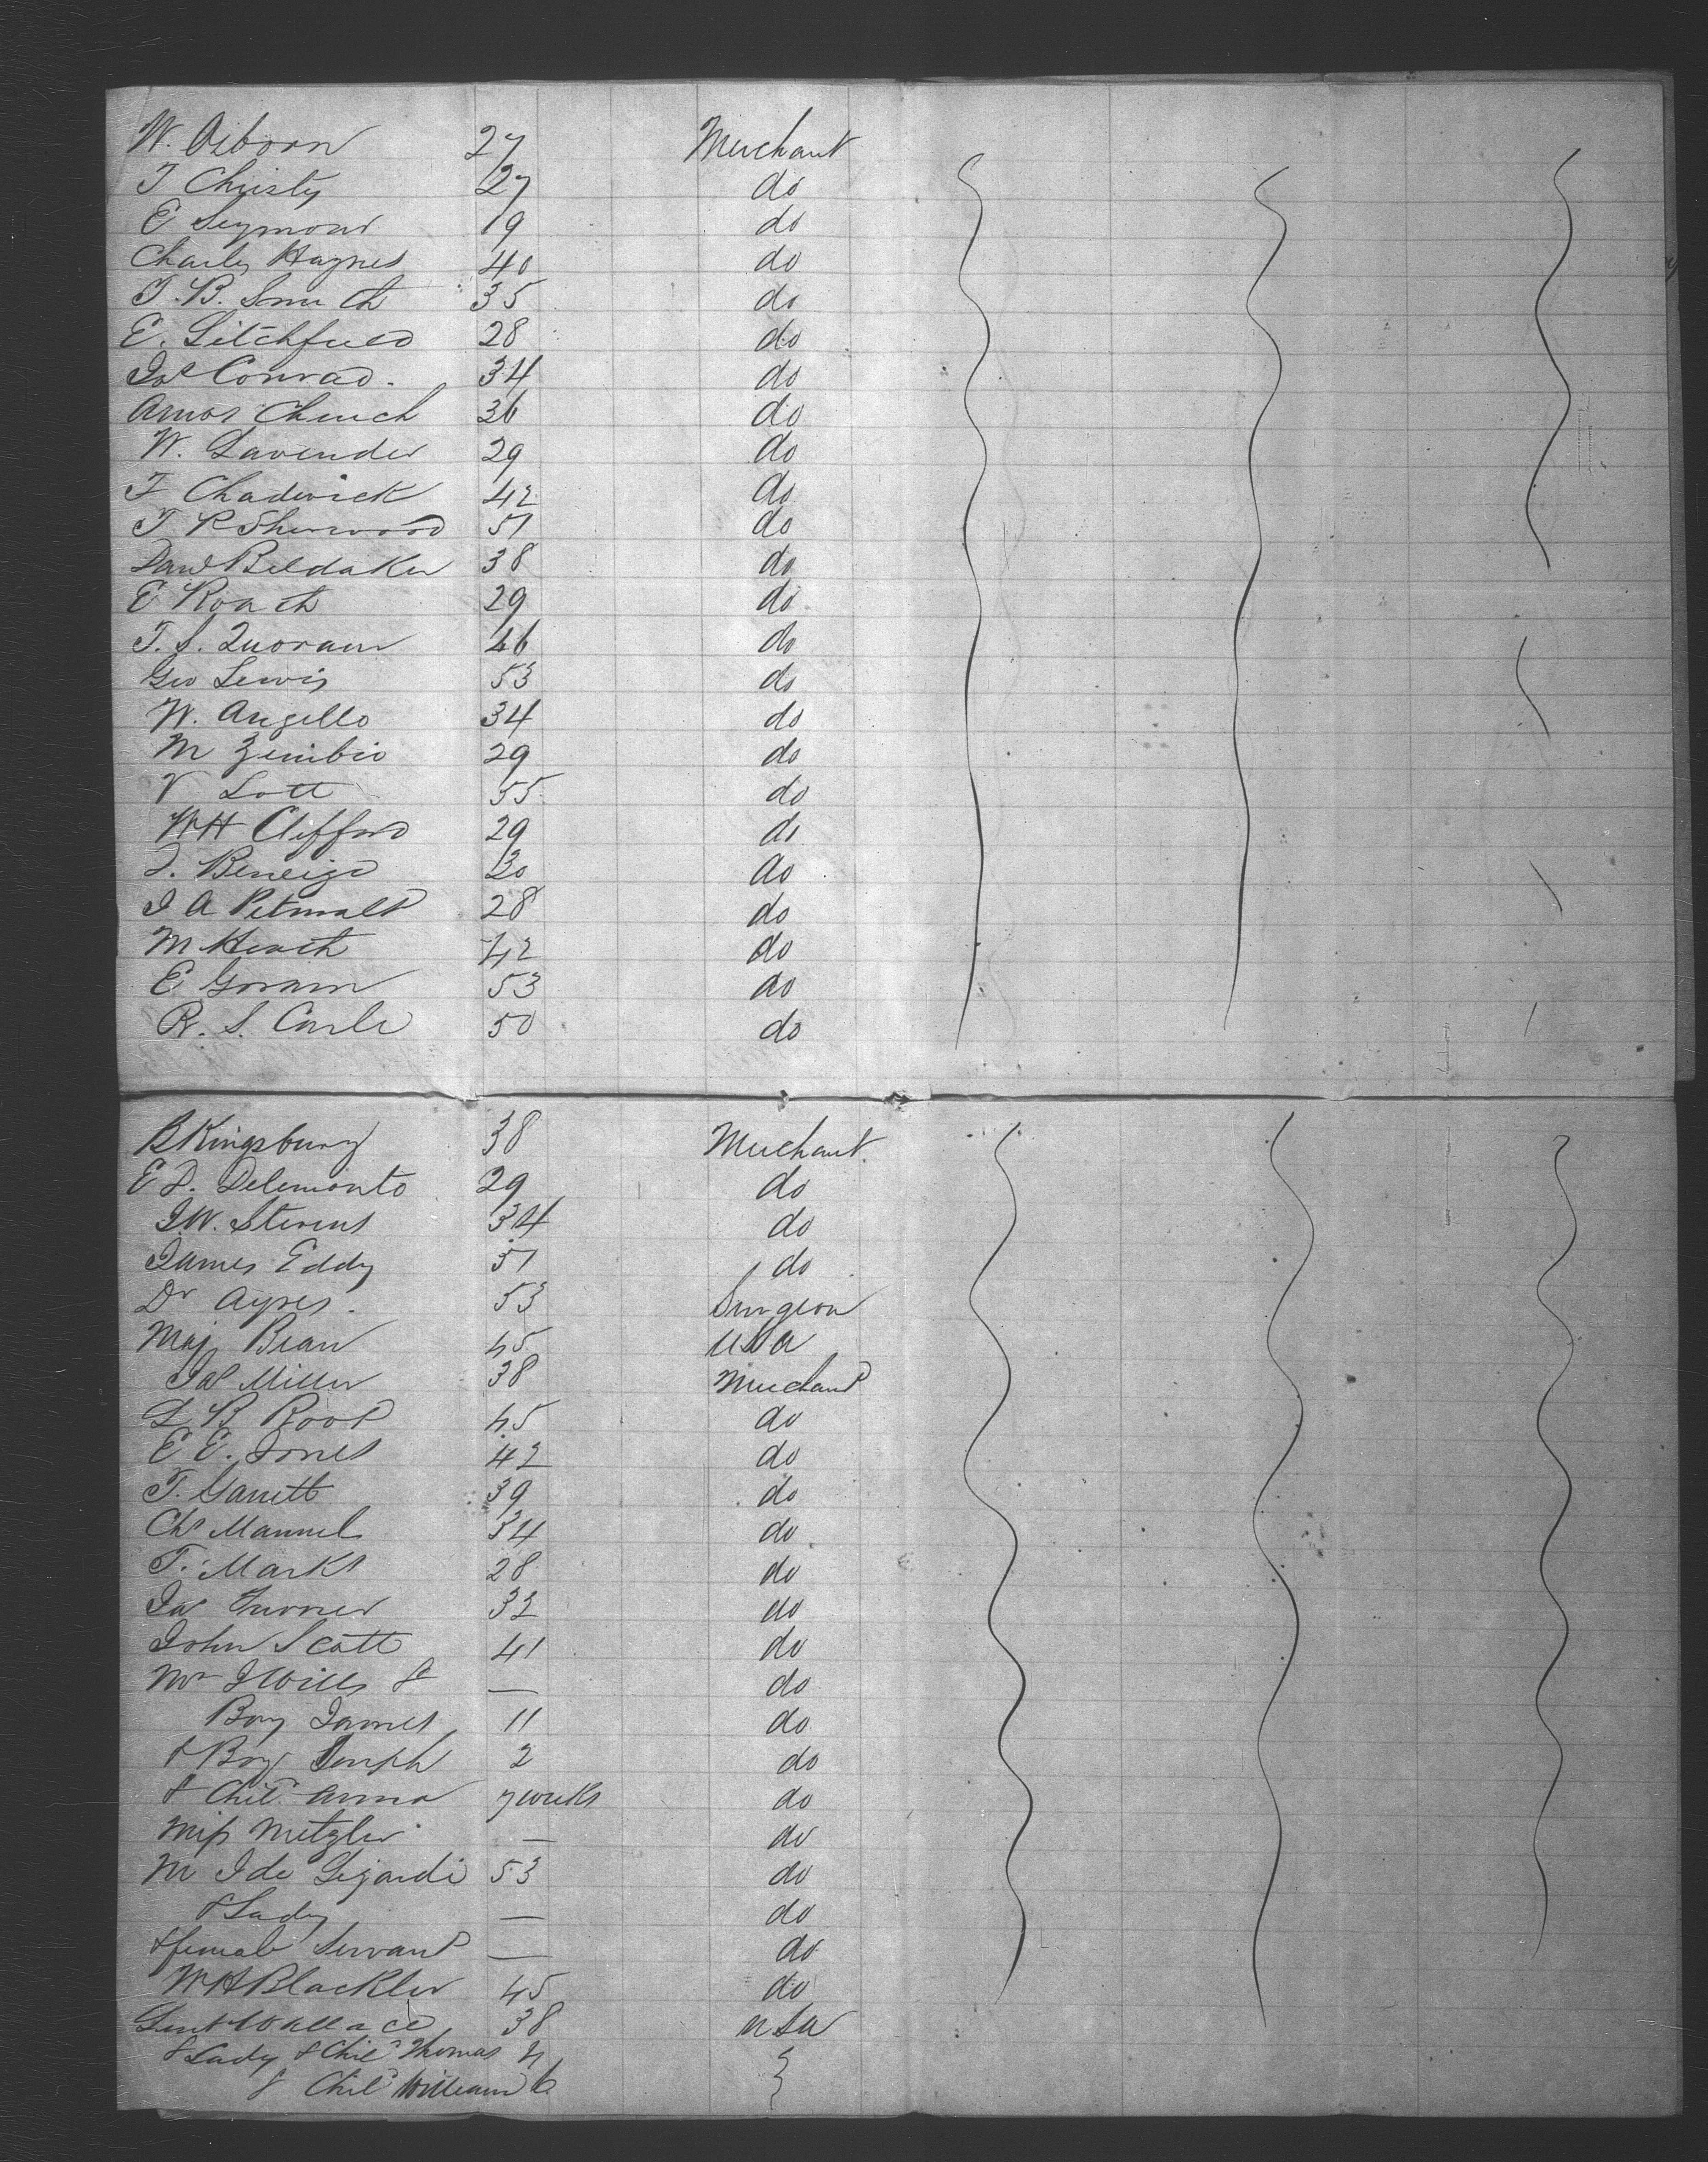 W. Osborn 27 Merchant
T Christy 27 do
E Seymour 19 do
Charles Haynes 40 do
T. B. Smith 35 do
E. Litchfield 28 do
Jos Conrad. 34 do
Amos Church 36 do
W. Lavender 29 do
F Chadwick 42 do
T R Sherwood 51 do
Danl Beldaker 38 do
E Roath 29 do
T. S. Quoram 46 do
Geo Lewis 53 do
W. Angello 34 do
M Zenibio 29 do
V Lott 55 do
WH Clifford 29 do
J. Beneigo 30 do
J A 28 do
M Heath 42 do
E Goram 53 do
R. S. Carle 50 do
B Kingsbury 38 Merchant.
E D. Delemonto 29 do
J.W. Stevens 34 do
James Eddy 51 do
Dr Ayres. 53 Surgeon
Maj Bean 45 USA
Jas Miller 38 Merchant
L B Root 45 do
E E. Jones 42 do
T. Garrett 39 do
Chs Mannel 34 do
T. Marks 28 do
Jas Turner 32 do
John Scott 41 do
Mrs J Wills & — do
Boy James 11 do
& Boy Joseph 2 do
& Chil Anna 7 weeks do
Miss Metzler — do
M J de Lejardi 53 do
& Lady — do
& female Servant — do
W H Blackler 45 do
Lieut Wallace 38 USA
& Lady & Chil Thomas 4
& Chil William 6